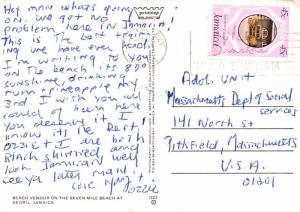 Hey man whats going
on. we got no
problem here in Jamaica!
This is the best train
ing we have ever had!
I'm writing to you
on the beach its 80°
sunshine, drinking
rum + pineapple
3rd. I wish you
could of been here
You deserve it I
know its the best!
Ozzie + I are both
black shirtted and
look Jamaican well
see ya later man!
Ozzie
BEACH VENDOR ON THE SEVEN MILE BEACH AT
NEGRIL, JAMAICA.
Jamaica
Adol. UNIT
Massachusetts Dept of Social
services
141 North st
Pittsfield, Massachusetts
U.S.A.
01201